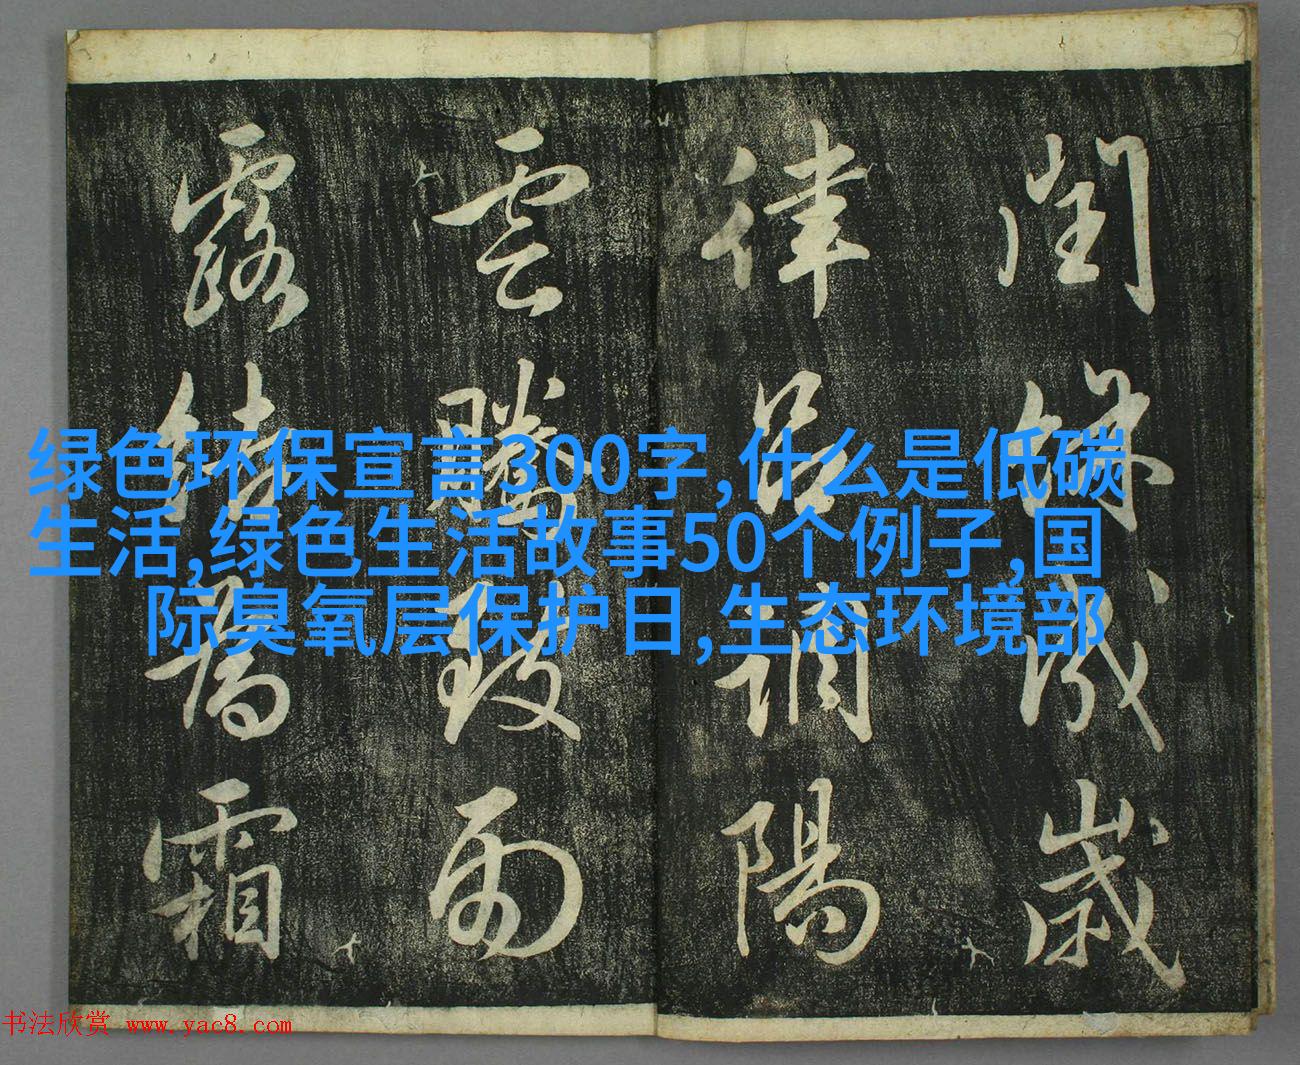 閏餘成歲
律呂調陽
雲騰致雨
露結為霜
绿色环保宣言300字,什么是低碳
生活,绿色生活故事50个例子,国
际臭氧层保护日,生态环境部
书法欣赏 www.yac8.com